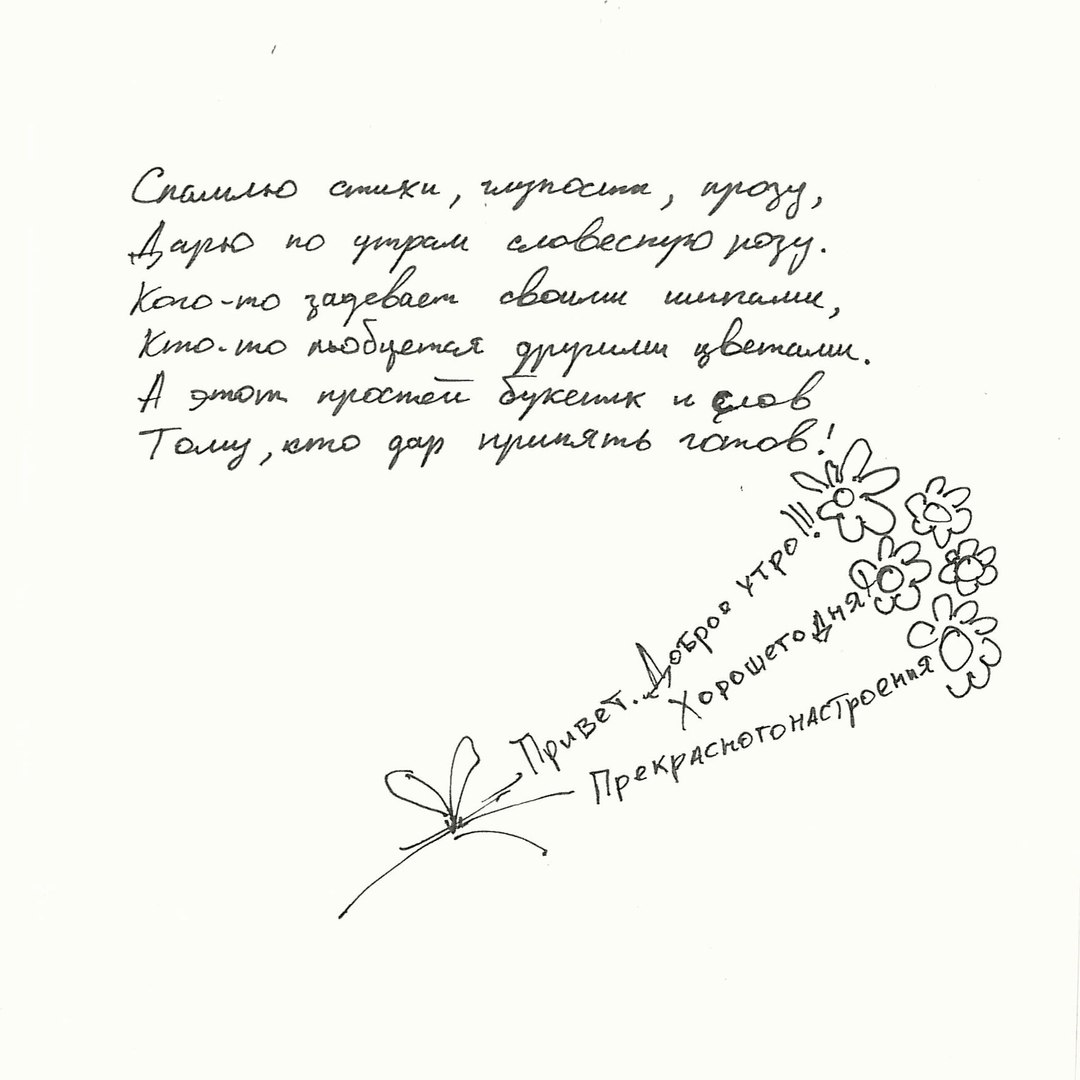 Спамлю стихи, глупости, прозу,
Дарю по утрам словесную розу.
Кого-то задевает своими шипами,
Кто-то любуется другими цветами.
А этот простой букетик и слов
Тому, кто дар принять готов!
Привет.. Доброе утро!!!
Хорошего дня!
Прекрасного настроения